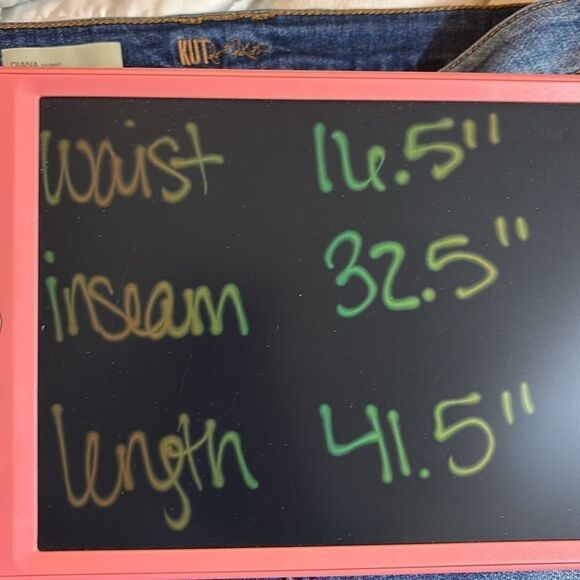 DIANA
KUT
waist 16.5"
inseam 32.5"
length 41.5"